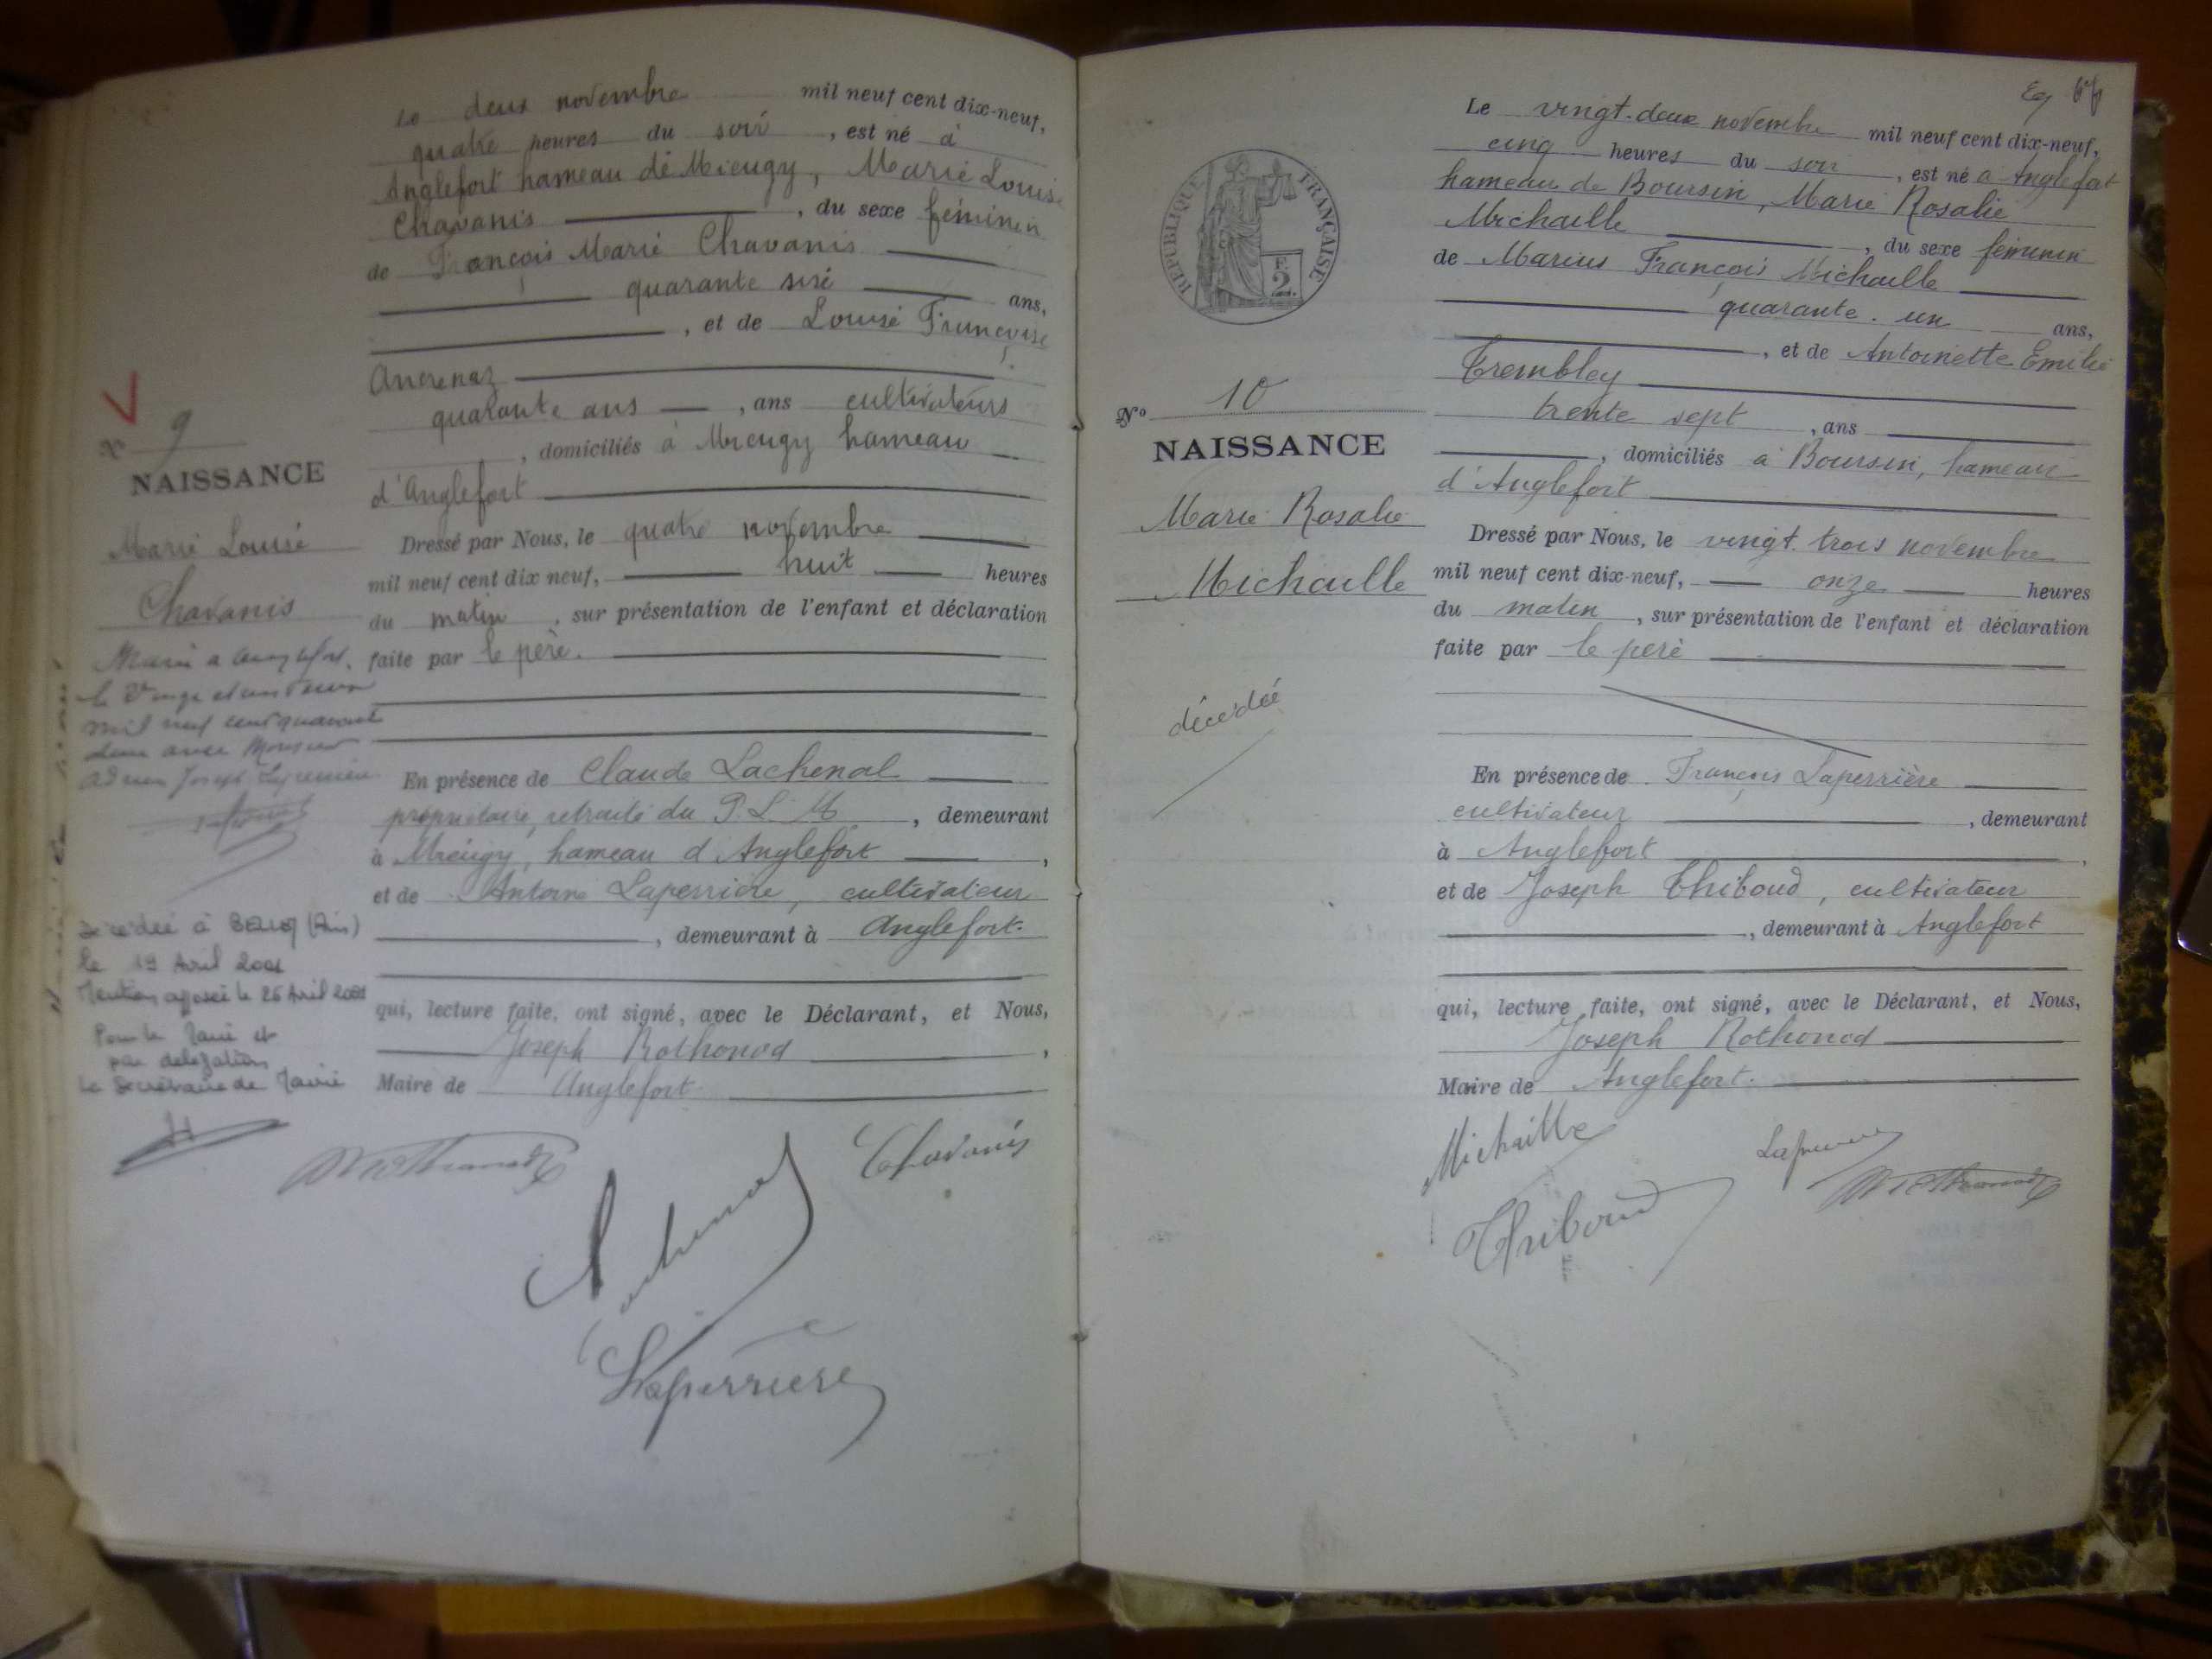 Le deux novembre mil neuf cent dix-neuf,
quatre heures du soir, est né à
Anglefort hameau de Mieugy, Marie Louise
Chavanis, du sexe féminin
de François Marie Chavanis
quarante six ans,
, et de Louise Françoise
quarante ans, ans cultivateurs
, domiciliés à Mieugy hameau
d'Anglefort
Dressé par Nous, le quatre novembre
mil neuf cent dix neuf, huit heures
du matin, sur présentation de l'enfant et déclaration
faite par le père.
En présence de Claude Lachenal
propriétaire, retraité du P. L. M, demeurant
à Mieugy, hameau d'Anglefort,
et de Antoine Laperrière, cultivateur
, demeurant à Anglefort.
qui, lecture faite, ont signé, avec le Déclarant, et Nous,
Joseph Rothonod,
Maire de Anglefort.
Chavanis
Lachenal
Laperrière
N° 9
NAISSANCE
Marie Louise
Chavanis
Marié a Anglefort,
le Vingt et un
mil neuf cent quarante
deux avec Monsieur
Joseph
Décédée à Belley (Ain)
le 19 Avril 2001
Mention apposée le 26 Avril 2001
Pour le Maire et
par délégation
Le Secrétaire de Mairie
RÉPUBLIQUE FRANÇAISE
F.
2
N° 10
NAISSANCE
Marie Rosalie
Michaille
décédée
Le vingt-deux novembre mil neuf cent dix-neuf,
cinq heures du soir, est né à Anglefort
hameau de Boursin, Marie Rosalie
Michaille, du sexe féminin
de Marius François Michaille
quarante-un ans,
, et de Antoinette Emilie
Trembley
trente sept, ans
, domiciliés à Boursin, hameau
d'Anglefort
Dressé par Nous, le vingt-trois novembre
mil neuf cent dix-neuf, onze heures
du matin, sur présentation de l'enfant et déclaration
faite par le père
En présence de François Laperrière
cultivateur, demeurant
à Anglefort,
et de Joseph Thiboud, cultivateur
, demeurant à Anglefort
qui, lecture faite, ont signé, avec le Déclarant, et Nous,
Joseph Rothonod
Maire de Anglefort.
Michaille
Thiboud